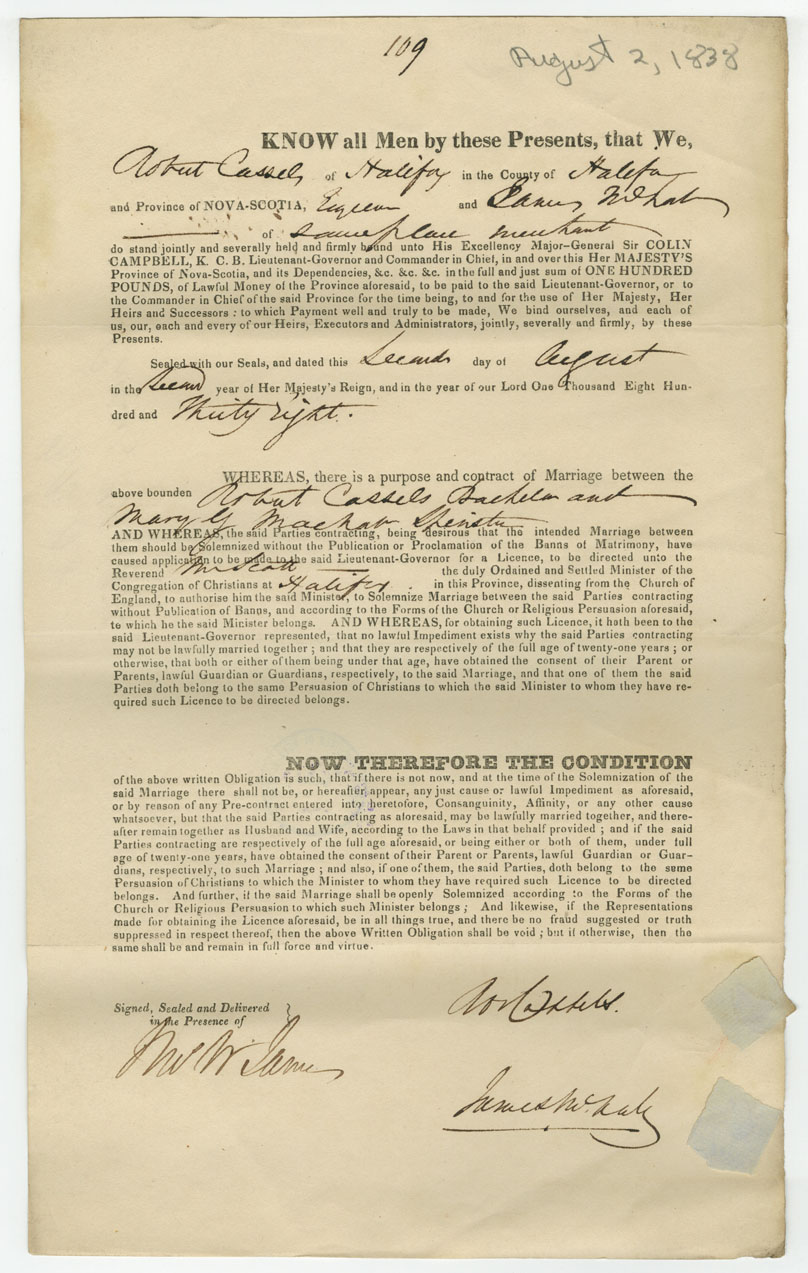 109
August 2, 1838
KNOW all Men by these Presents, that We,
Robert Cassels of Halifax in the County of Halifax
and Province of NOVA-SCOTIA, and James McNab
of same place merchant
do stand jointly and severally held and firmly bound unto His Excellency Major-General Sir COLIN
CAMPBELL, K. C. B. Lieutenant-Governor and Commander in Chief, in and over this Her MAJESTY'S
Province of Nova-Scotia, and its Dependencies, &c. &c. &c. in the full and just sum of ONE HUNDRED
POUNDS, of Lawful Money of the Province aforesaid, to be paid to the said Lieutenant-Governor, or to
the Commander in Chief of the said Province for the time being, to and for the use of Her Majesty, Her
Heirs and Successors : to which Payment well and truly to be made, We bind ourselves, and each of
us, our, each and every of our Heirs, Executors and Administrators, jointly, severally and firmly, by these
Presents.
Sealed with our Seals, and dated this Second day of August
in the Second year of Her Majesty's Reign, and in the year of our Lord One Thousand Eight Hun-
dred and Thirty eight.
WHEREAS, there is a purpose and contract of Marriage between the
above bounden Robert Cassels Bachelor and
Mary G Macnab Spinster
AND WHEREAS, the said Parties contracting, being desirous that the intended Marriage between
them should be Solemnized without the Publication or Proclamation of the Banns of Matrimony, have
caused application to be made to the said Lieutenant-Governor for a Licence, to be directed unto the
Reverend the duly Ordained and Settled Minister of the
Congregation of Christians at Halifax in this Province, dissenting from the Church of
England, to authorise him the said Minister, to Solemnize Marriage between the said Parties contracting
without Publication of Banns, and according to the Forms of the Church or Religious Persuasion aforesaid,
to which he the said Minister belongs. AND WHEREAS, for obtaining such Licence, it hath been to the
said Lieutenant-Governor represented, that no lawful Impediment exists why the said Parties contracting
may not be lawfully married together ; and that they are respectively of the full age of twenty-one years ; or
otherwise, that both or either of them being under that age, have obtained the consent of their Parent or
Parents, lawful Guardian or Guardians, respectively, to the said Marriage, and that one of them the said
Parties doth belong to the same Persuasion of Christians to which the said Minister to whom they have re-
quired such Licence to be directed belongs.
NOW THEREFORE THE CONDITION
of the above written Obligation is such, that if there is not now, and at the time of the Solemnization of the
said Marriage there shall not be, or hereafter appear, any just cause or lawful Impediment as aforesaid,
or by reason of any Pre-contract entered into heretofore, Consanguinity, Affinity, or any other cause
whatsoever, but that the said Parties contracting as aforesaid, may be lawfully married together, and there-
after remain together as Husband and Wife, according to the Laws in that behalf provided ; and if the said
Parties contracting are respectively of the full age aforesaid, or being either or both of them, under full
age of twenty-one years, have obtained the consent of their Parent or Parents, lawful Guardian or Guar-
dians, respectively, to such Marriage ; and also, if one of them, the said Parties, doth belong to the same
Persuasion of Christians to which the Minister to whom they have required such Licence to be directed
belongs. And further, if the said Marriage shall be openly Solemnized according to the Forms of the
Church or Religious Persuasion to which such Minister belongs ; And likewise, if the Representations
made for obtaining the Licence aforesaid, be in all things true, and there be no fraud suggested or truth
suppressed in respect thereof, then the above Written Obligation shall be void ; but if otherwise, then the
same shall be and remain in full force and virtue.
Signed, Sealed and Delivered
in the Presence of
Rob Cassels.
Thos W. James
James McNab